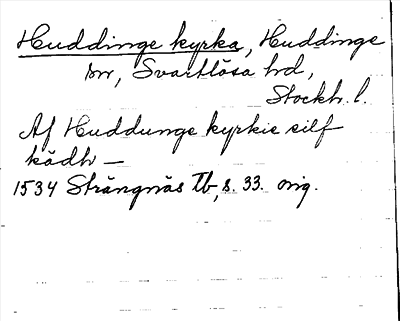 Huddinge kyrka, Huddinge
sn, Svartlösa hd,
Stockh. l.
Af Huddunge kyrkie silf
kådh —
1534 Strängnäs Tb, s. 33. orig.